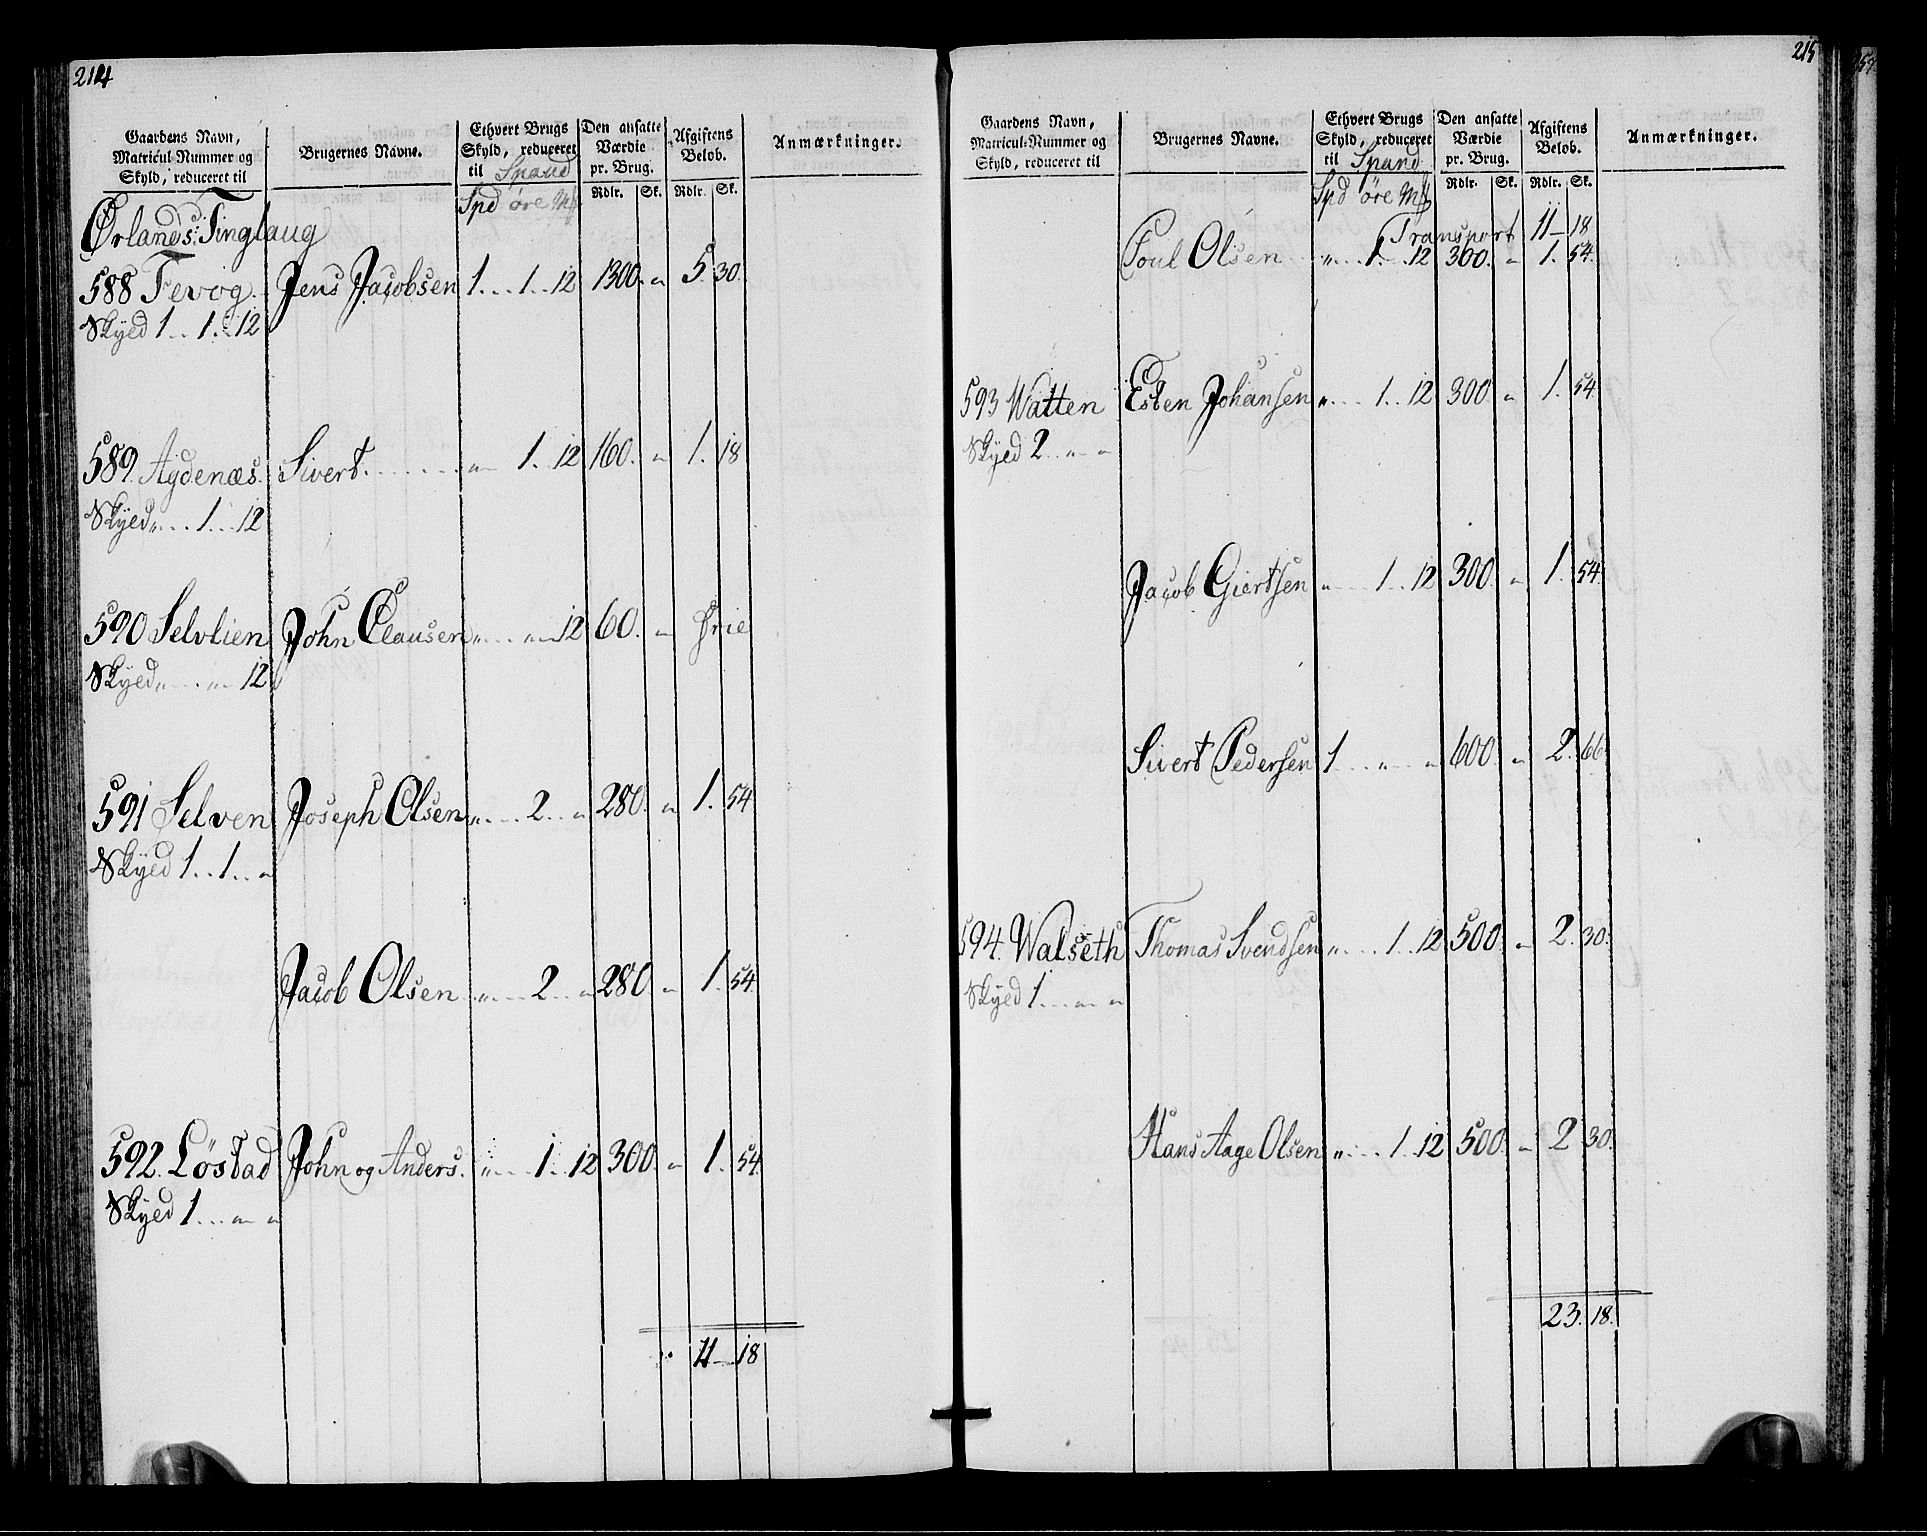 214
Gaardens Navn, Matricul-Nummer og Skyld, reduceret til
Brugernes Navne.
Ethvert Brugs Skyld, reduceret til Spand
Den ansatte Værdie pr. Brug.
Afgiftens Beløb.
Anmærkninger.
Spd øre Mk
Rdlr. Sk. Rdlr. Sk.
Ørlands Tinglaug
588 Fevog. Jens Jacobsen 1...1..12 1300. " 5. 30.
Skyed 1...1...12
589. Aydenæs. Sivert........ " 1..12 160. " 1. 18
Skyed "....1...12
590 Selvlien John Clausen "..."..12 60. " frie
Skyed "...."..12
591 Selven Joseph Olsen "....2.." 280. " 1. 54
Skyed 1..1.. "
Jacob Olsen "....2..." 280. " 1. 54.
592. Løstad John og Anders. "....1..12 300. " 1. 54
Skyed 1..." "
11 18
215
Gaardens Navn, Matricul-Nummer og Skyld, reduceret til
Brugernes Navne.
Ethvert Brugs Skyld, reduceret til Spand
Den ansatte Værdie pr. Brug.
Afgiftens Beløb.
Anmærkninger.
Spd øre Mk
Rdlr. Sk. Rdlr. Sk.
Transport 11 18
Poul Olsen "...1...12 300. " 1. 54.
593 Watten Esten Johansen "....1..12 300. " 1. 54
Skyed 2.." "
Jacob Giertsen "....1..12 300. " 1. 54
Sivert Pedersen 1...."..." 600. " 2. 66
594. Walseth Thomas Svendsen "....1..12 500. " 2. 30.
Skyed 1...." "
Hans Aage Olsen "....1..12 500. " 2 30.
23. 18.